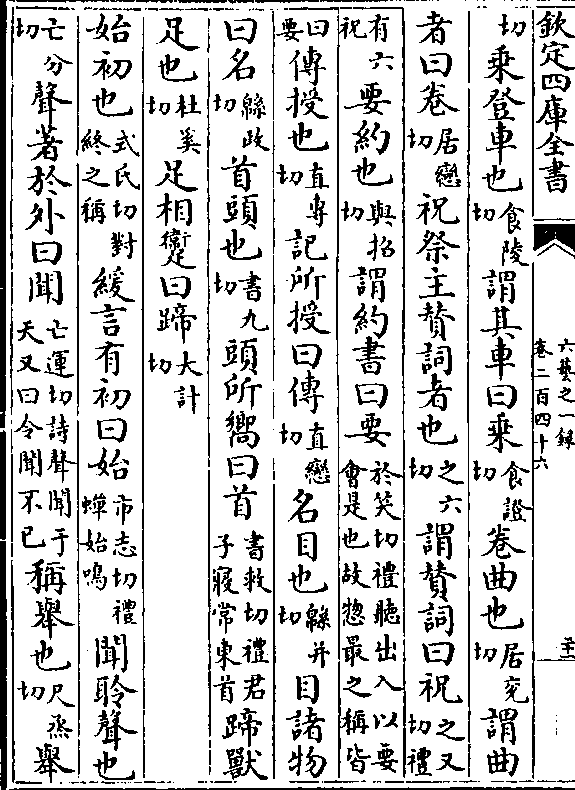 欽定四庫全書
六藝之一錄
卷二百四十六
切乗登車也食陵切謂其車曰乗食證切卷曲也居兖切謂曲
者曰卷居戀切祝祭主賛詞者也之六切謂賛詞曰祝之又切禮
有六祝要約也與招切謂約書曰要於笑切禮聽出入以要會是也故惣最之稱皆
曰要傳授也直専切記所授曰傳直戀切名目也緜并切目諸物
曰名緜政切首頭也書九切頭所嚮曰首書救切禮君子寢常東首蹄獸
足也杜奚切足相躗曰蹄大計切
始初也式氏切對終之稱緩言有初曰始市志切禮蟬始鳴聞聆聲也
亡分切聲著於外曰聞亡運切詩聲聞于天又曰令聞不已稱舉也尺烝切舉